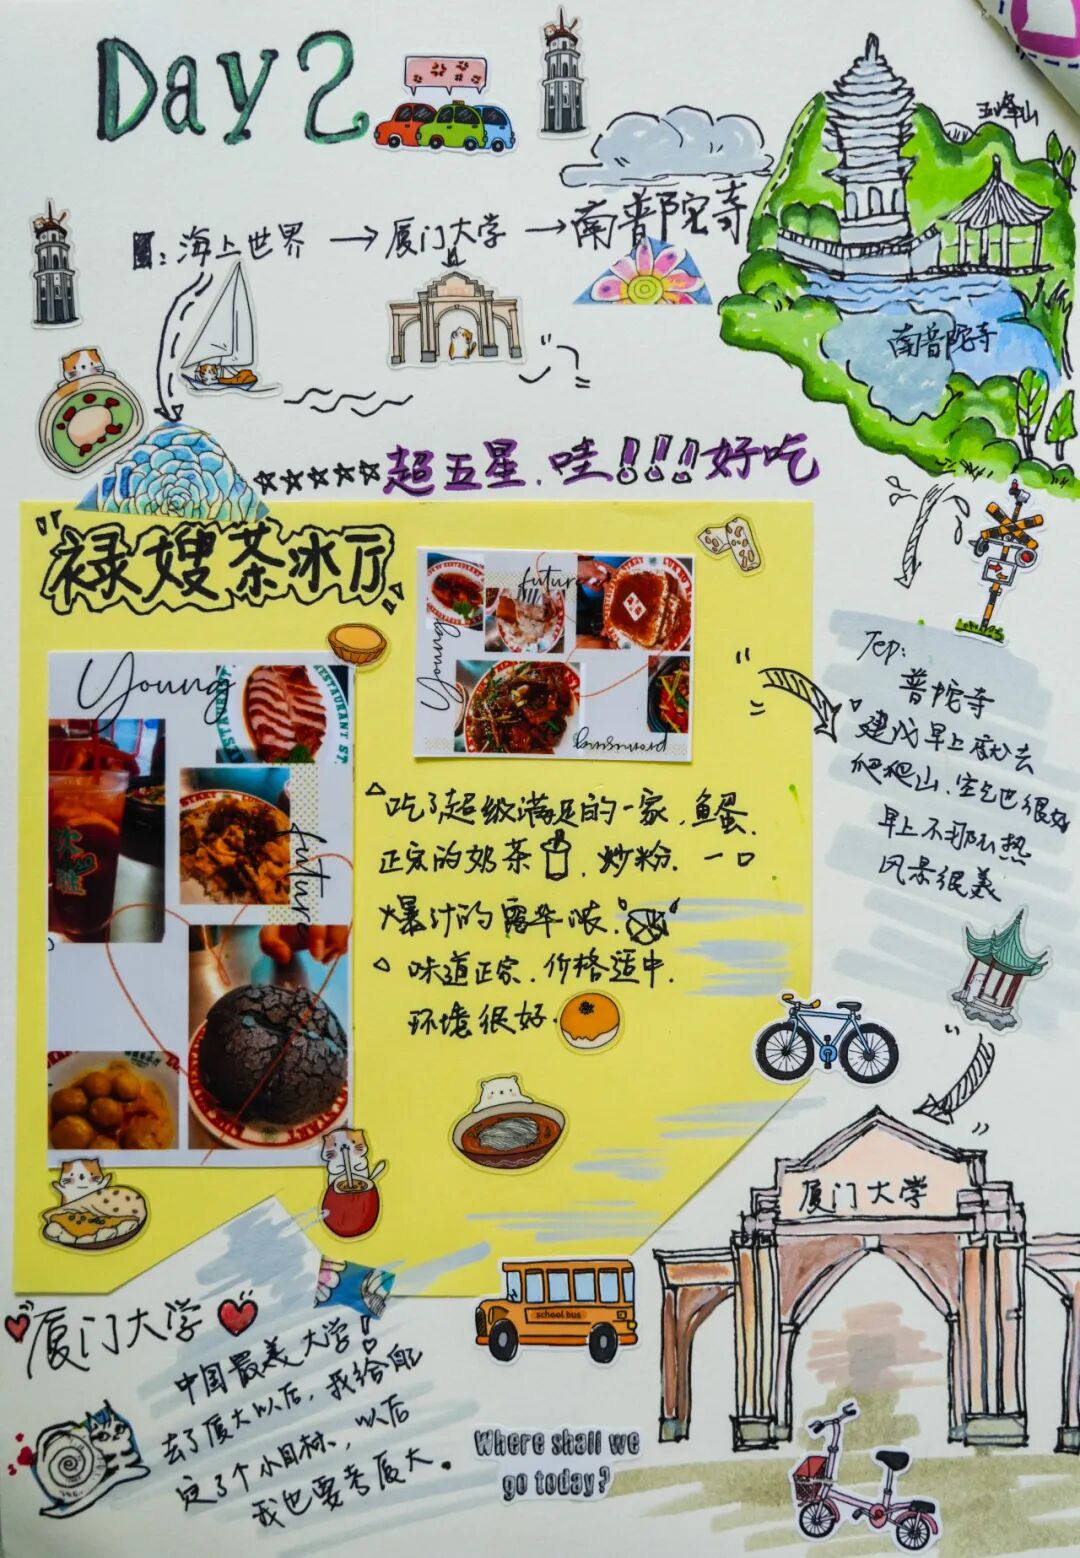 Day 2
五峰山
:海上世界 → 厦门大学 → 南普陀寺
南普陀寺
☆☆☆☆☆超五星.哇!!!好吃
禄嫂茶冰厅
young
future
young
future
Tep:
普陀寺
建议早上就去
爬爬山.空气也很好
早上不那么热
风景很美
△吃了超级满足的一家.鱼蛋.
正宗的奶茶.炒粉.一口
爆汁的
△味道正宗.价格适中.
环境很好.
厦门大学
school bus
厦门大学
中国最美大学!
去了厦大以后,我给自己
定了个小目标,以后
我也要考厦大。
Where shall we
go today?